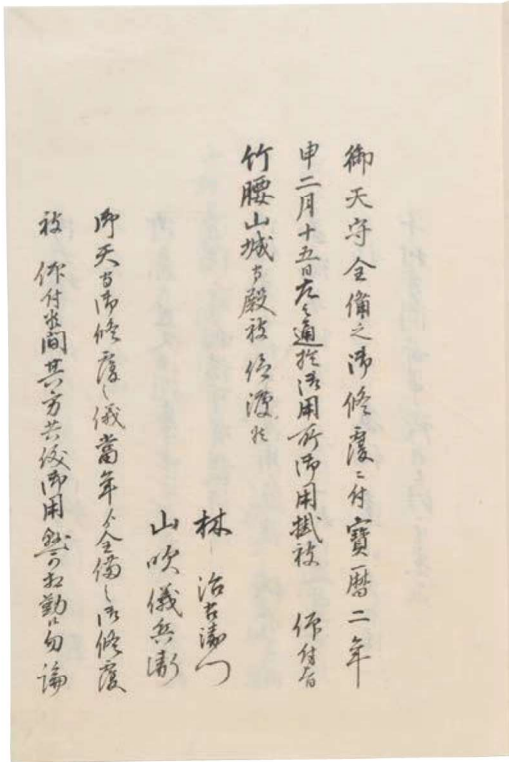 御天守全備之御修覆ニ付寶暦二年
申二月十五日左之通於御用所御用掛被 仰付旨
竹腰山城守殿被仰渡候
林 治右衛門
山吹儀兵衛
御天守御修覆之儀當年ゟ全備之御修覆
被 仰付候間其方共儀御用懸可相勤候勿論